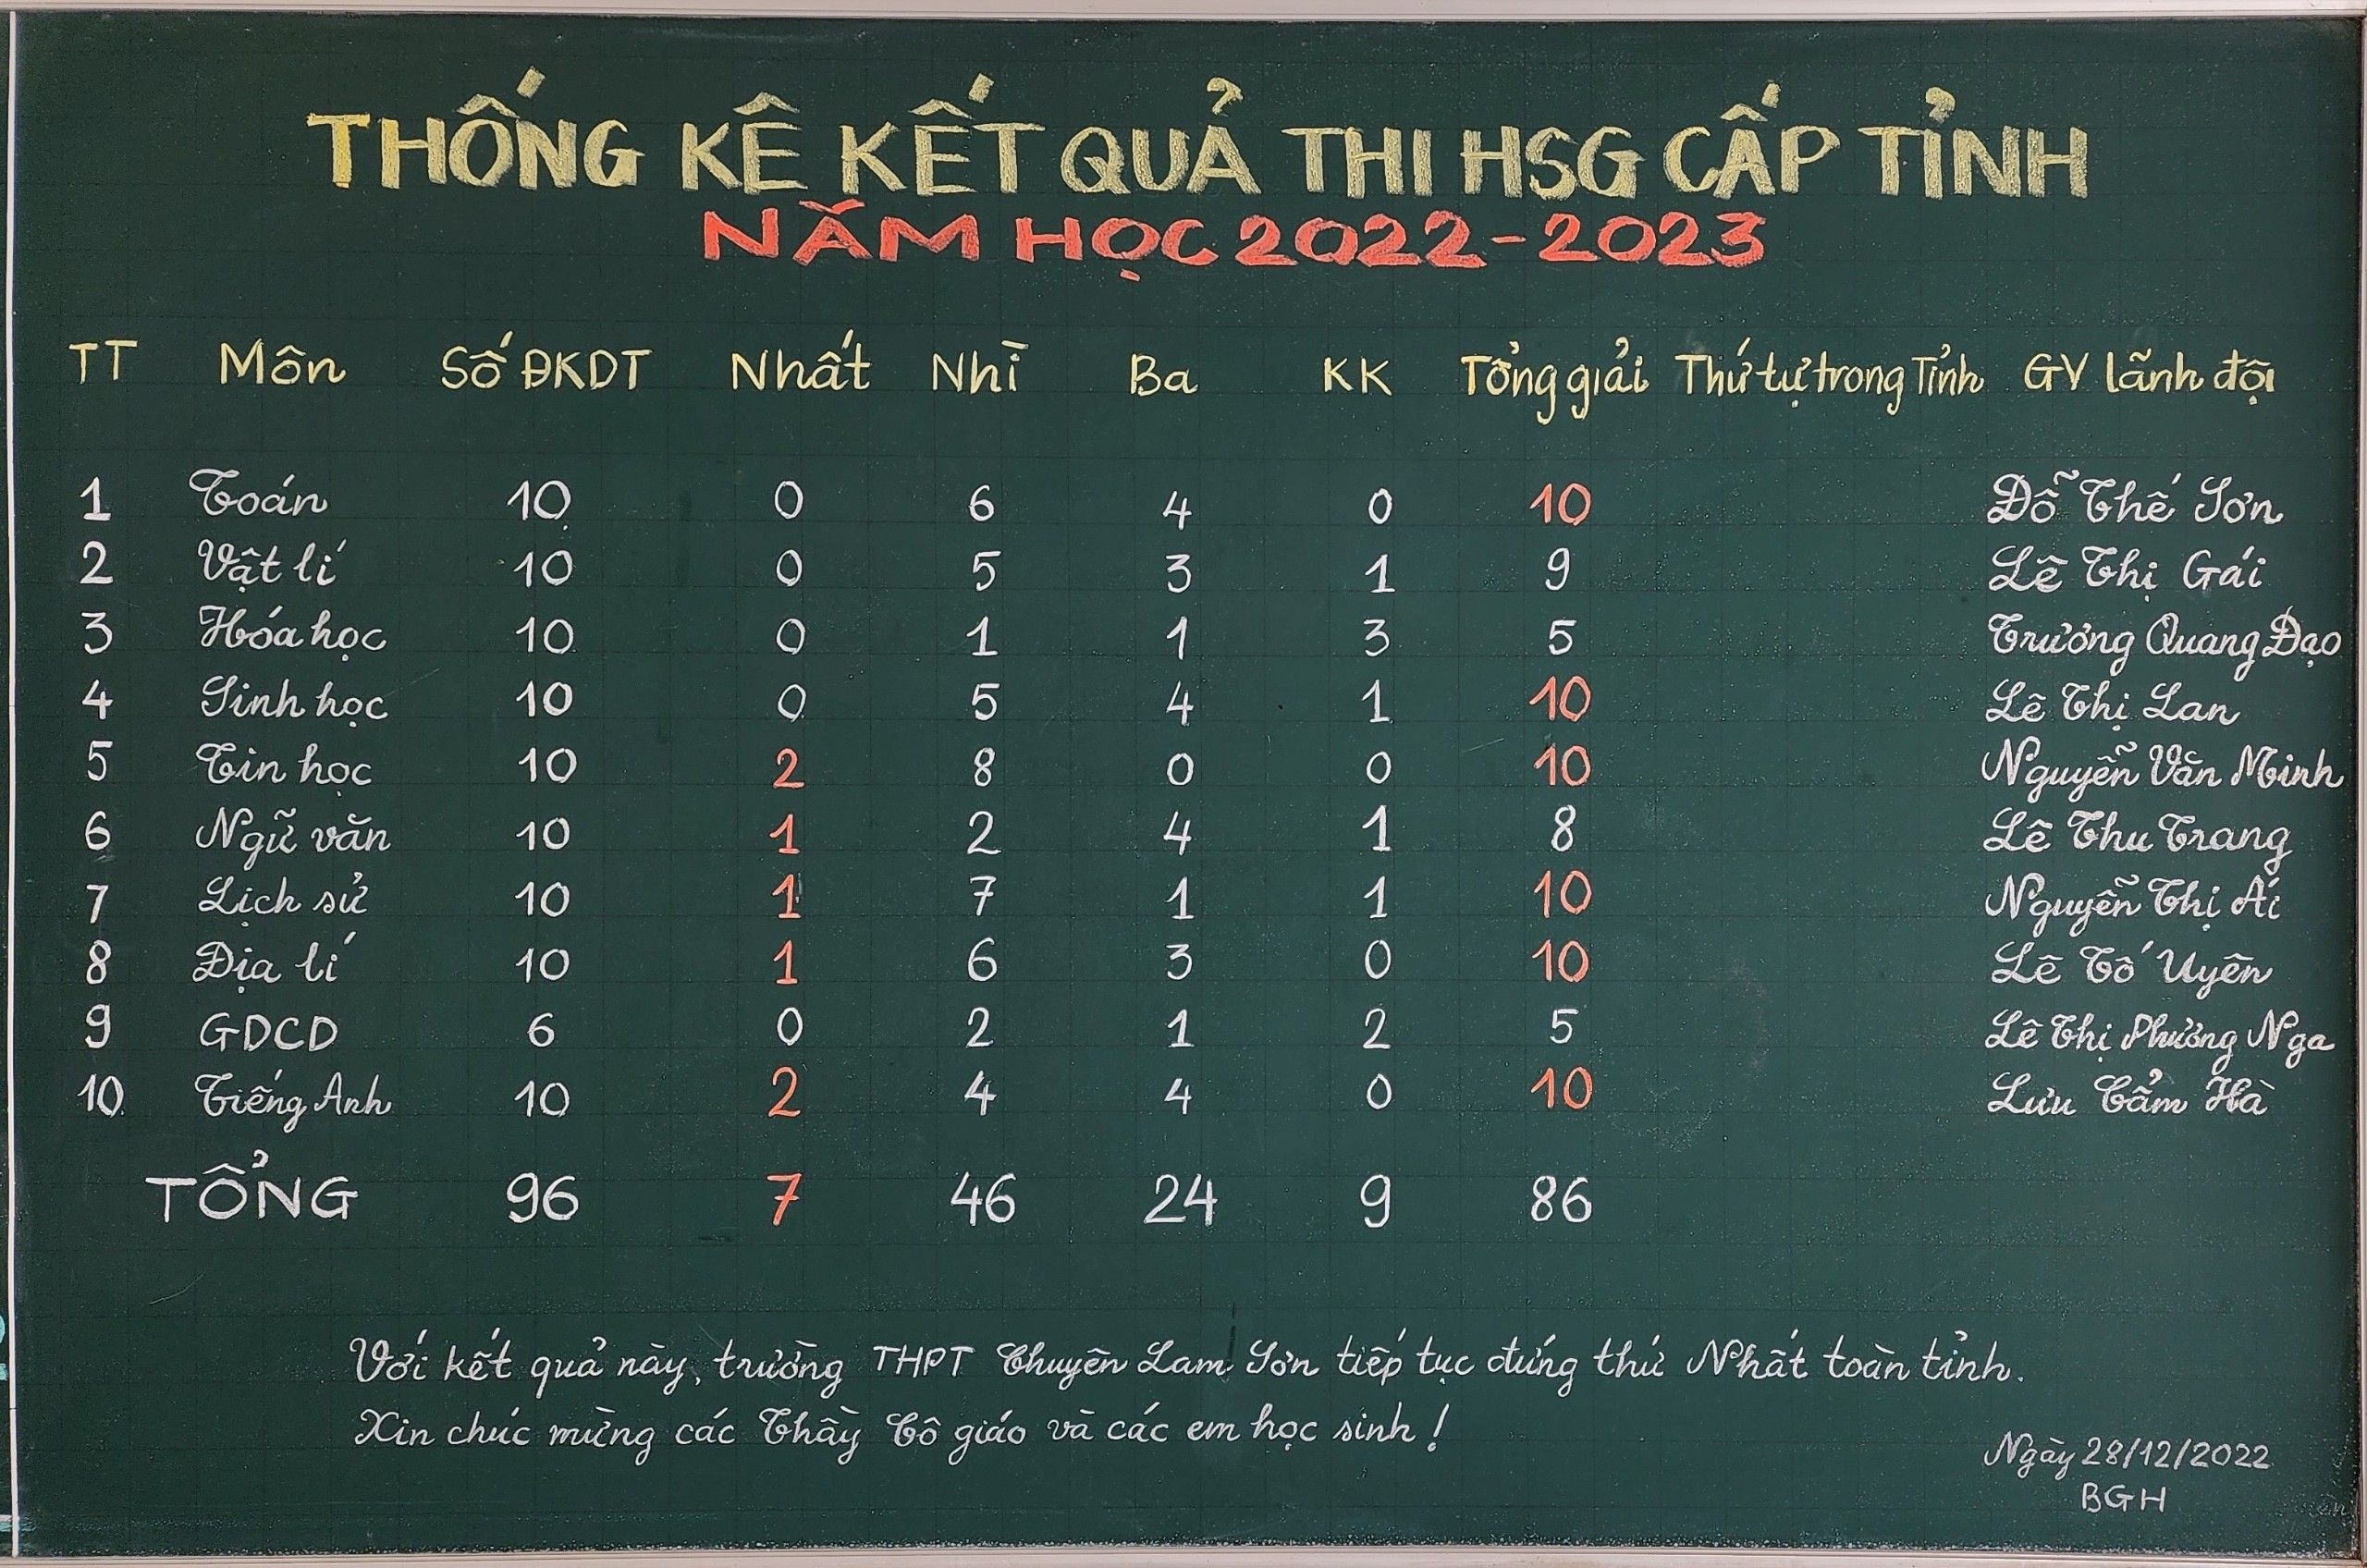 THỐNG KÊ KẾT QUẢ THI HSG CẤP TỈNH
NĂM HỌC 2022-2023
TT Môn Số ĐKDT Nhất Nhì Ba KK Tổng giải Thứ tự trong Tỉnh GV lãnh đội
1 Toán 10 0 6 4 0 10 Đỗ Thế Sơn
2 Vật lí 10 0 5 3 1 9 Lê Thị Gái
3 Hóa học 10 0 1 1 3 5 Trương Quang Đạo
4 Sinh học 10 0 5 4 1 10 Lê Thị Lan
5 Tin học 10 2 8 0 0 10 Nguyễn Văn Minh
6 Ngữ văn 10 1 2 4 1 8 Lê Thu Trang
7 Lịch sử 10 1 7 1 1 10 Nguyễn Thị Ái
8 Địa lí 10 1 6 3 0 10 Lê Tố Uyên
9 GDCD 6 0 2 1 2 5 Lê Thị Phương Nga
10 Tiếng Anh 10 2 4 4 0 10 Lưu Cẩm Hà
TỔNG 96 7 46 24 9 86
Với kết quả này, trường THPT Chuyên Lam Sơn tiếp tục đứng thứ Nhất toàn tỉnh.
Xin chúc mừng các Thầy Cô giáo và các em học sinh!
Ngày 28/12/2022
BGH